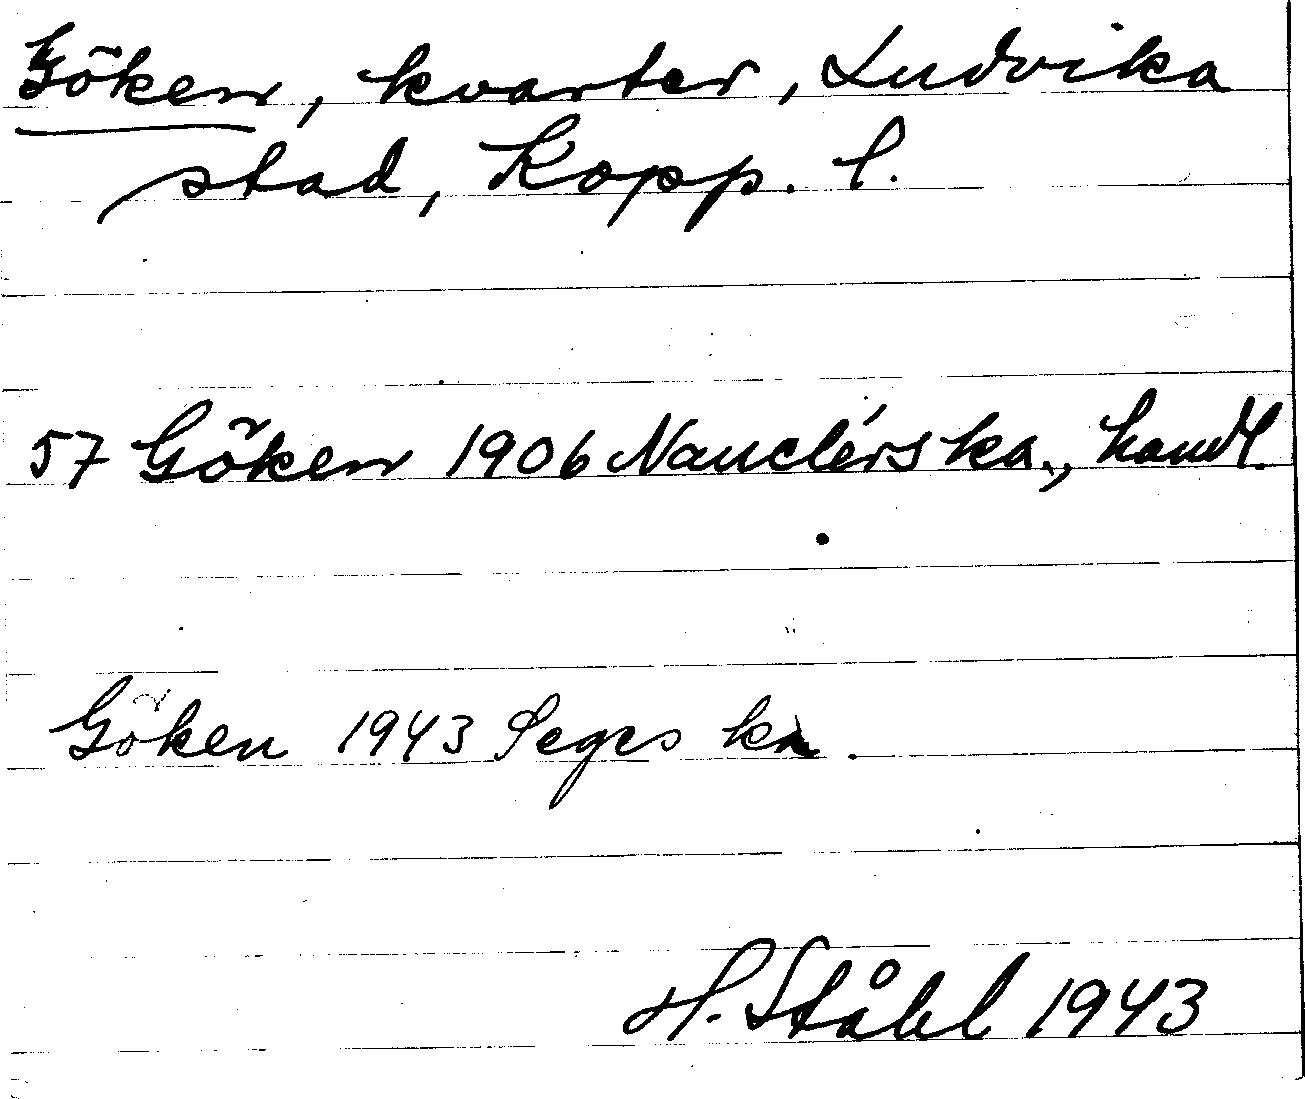 Göken, kvarter, Ludvika
stad, Kopp. l.
57 Göken 1906 Nauclérs ka., handl.
Göken 1943 Seges ka.
H. Ståhl 1943